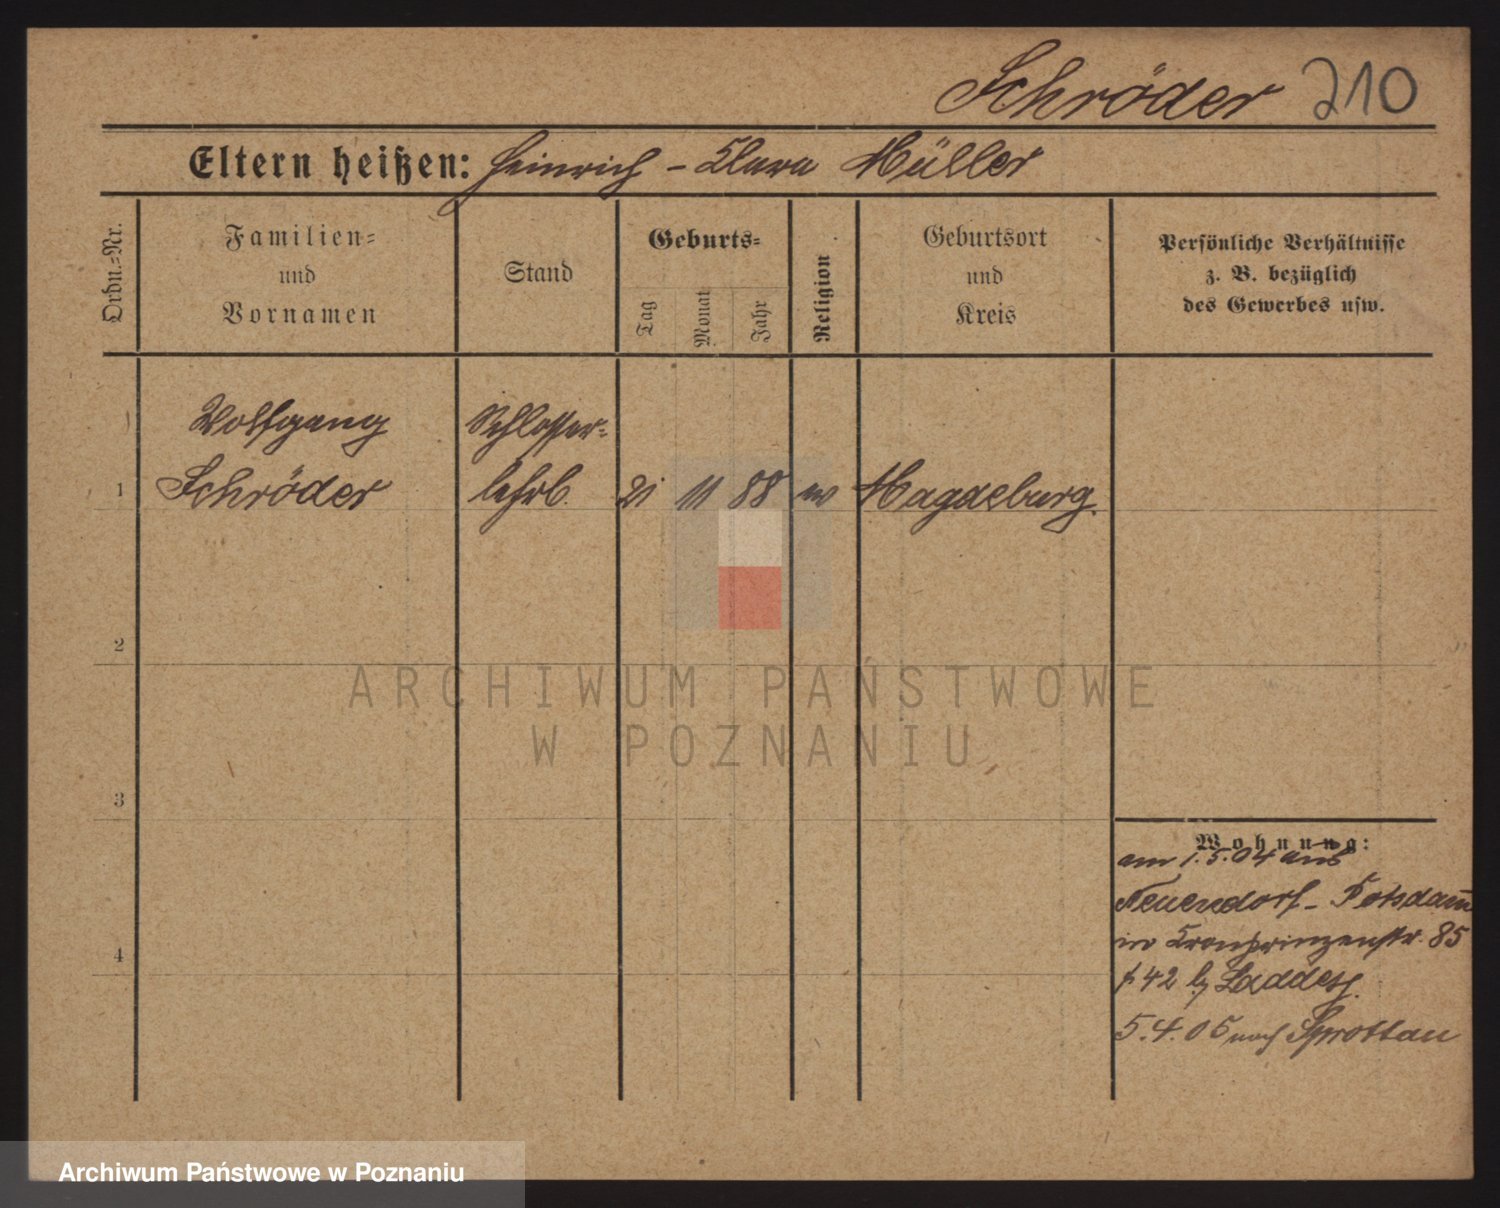 Schröder 210
Eltern heißen: Heinrich - Clara Müller
Ordn.-Nr.
Familien-
und
Vornamen
Stand
Geburts-
Tag
Monat
Jahr
Religion
Geburtsort
und
Kreis
Persönliche Verhältnisse
z. B. bezüglich
des Gewerbes usw.
Wolfgang
Schlosser-
1 Schröder lehrl. 21 11 88 ev Magdeburg.
2
3
4
Wohnung:
am 1.5.04 aus
Neuendorf - Potsdam
in Kronprinzenstr. 85
42 b/
5.4.05 nach Sprottau
ARCHIWUM PAŃSTWOWE
W POZNANIU
Archiwum Państwowe w Poznaniu